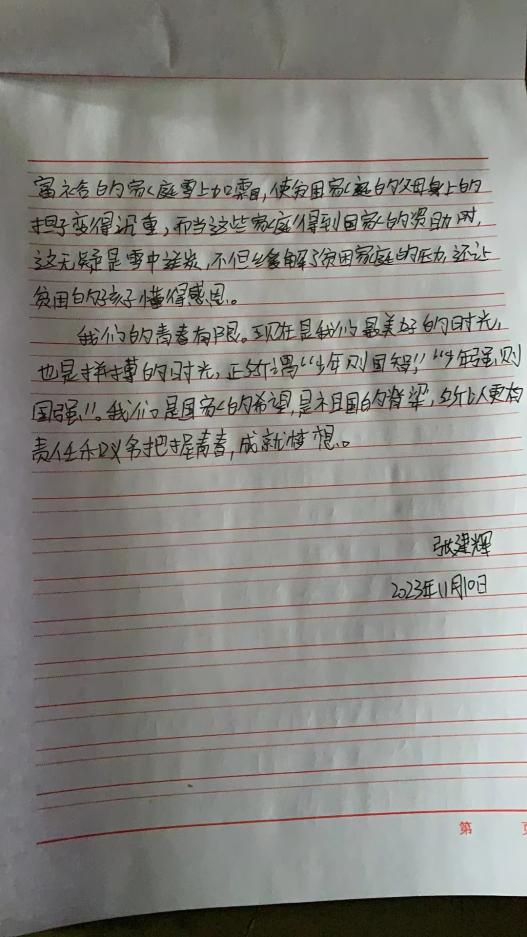 富裕的家庭雪上加霜,使贫困家庭的父母身上的
担子变得沉重,而当这些家庭得到国家的资助时,
这无疑是雪中送炭,不但缓解了贫困家庭的压力,还让
贫困的孩子懂得感恩。
我们的青春有限。现在是我们最美好的时光,
也是拼搏的时光,正所谓“少年则国智!”“少年强则
国强!”。我们是国家的希望,是祖国的脊梁,所以更有
责任和义务把握青春,成就梦想。
张建辉
2023年11月10日
第 页